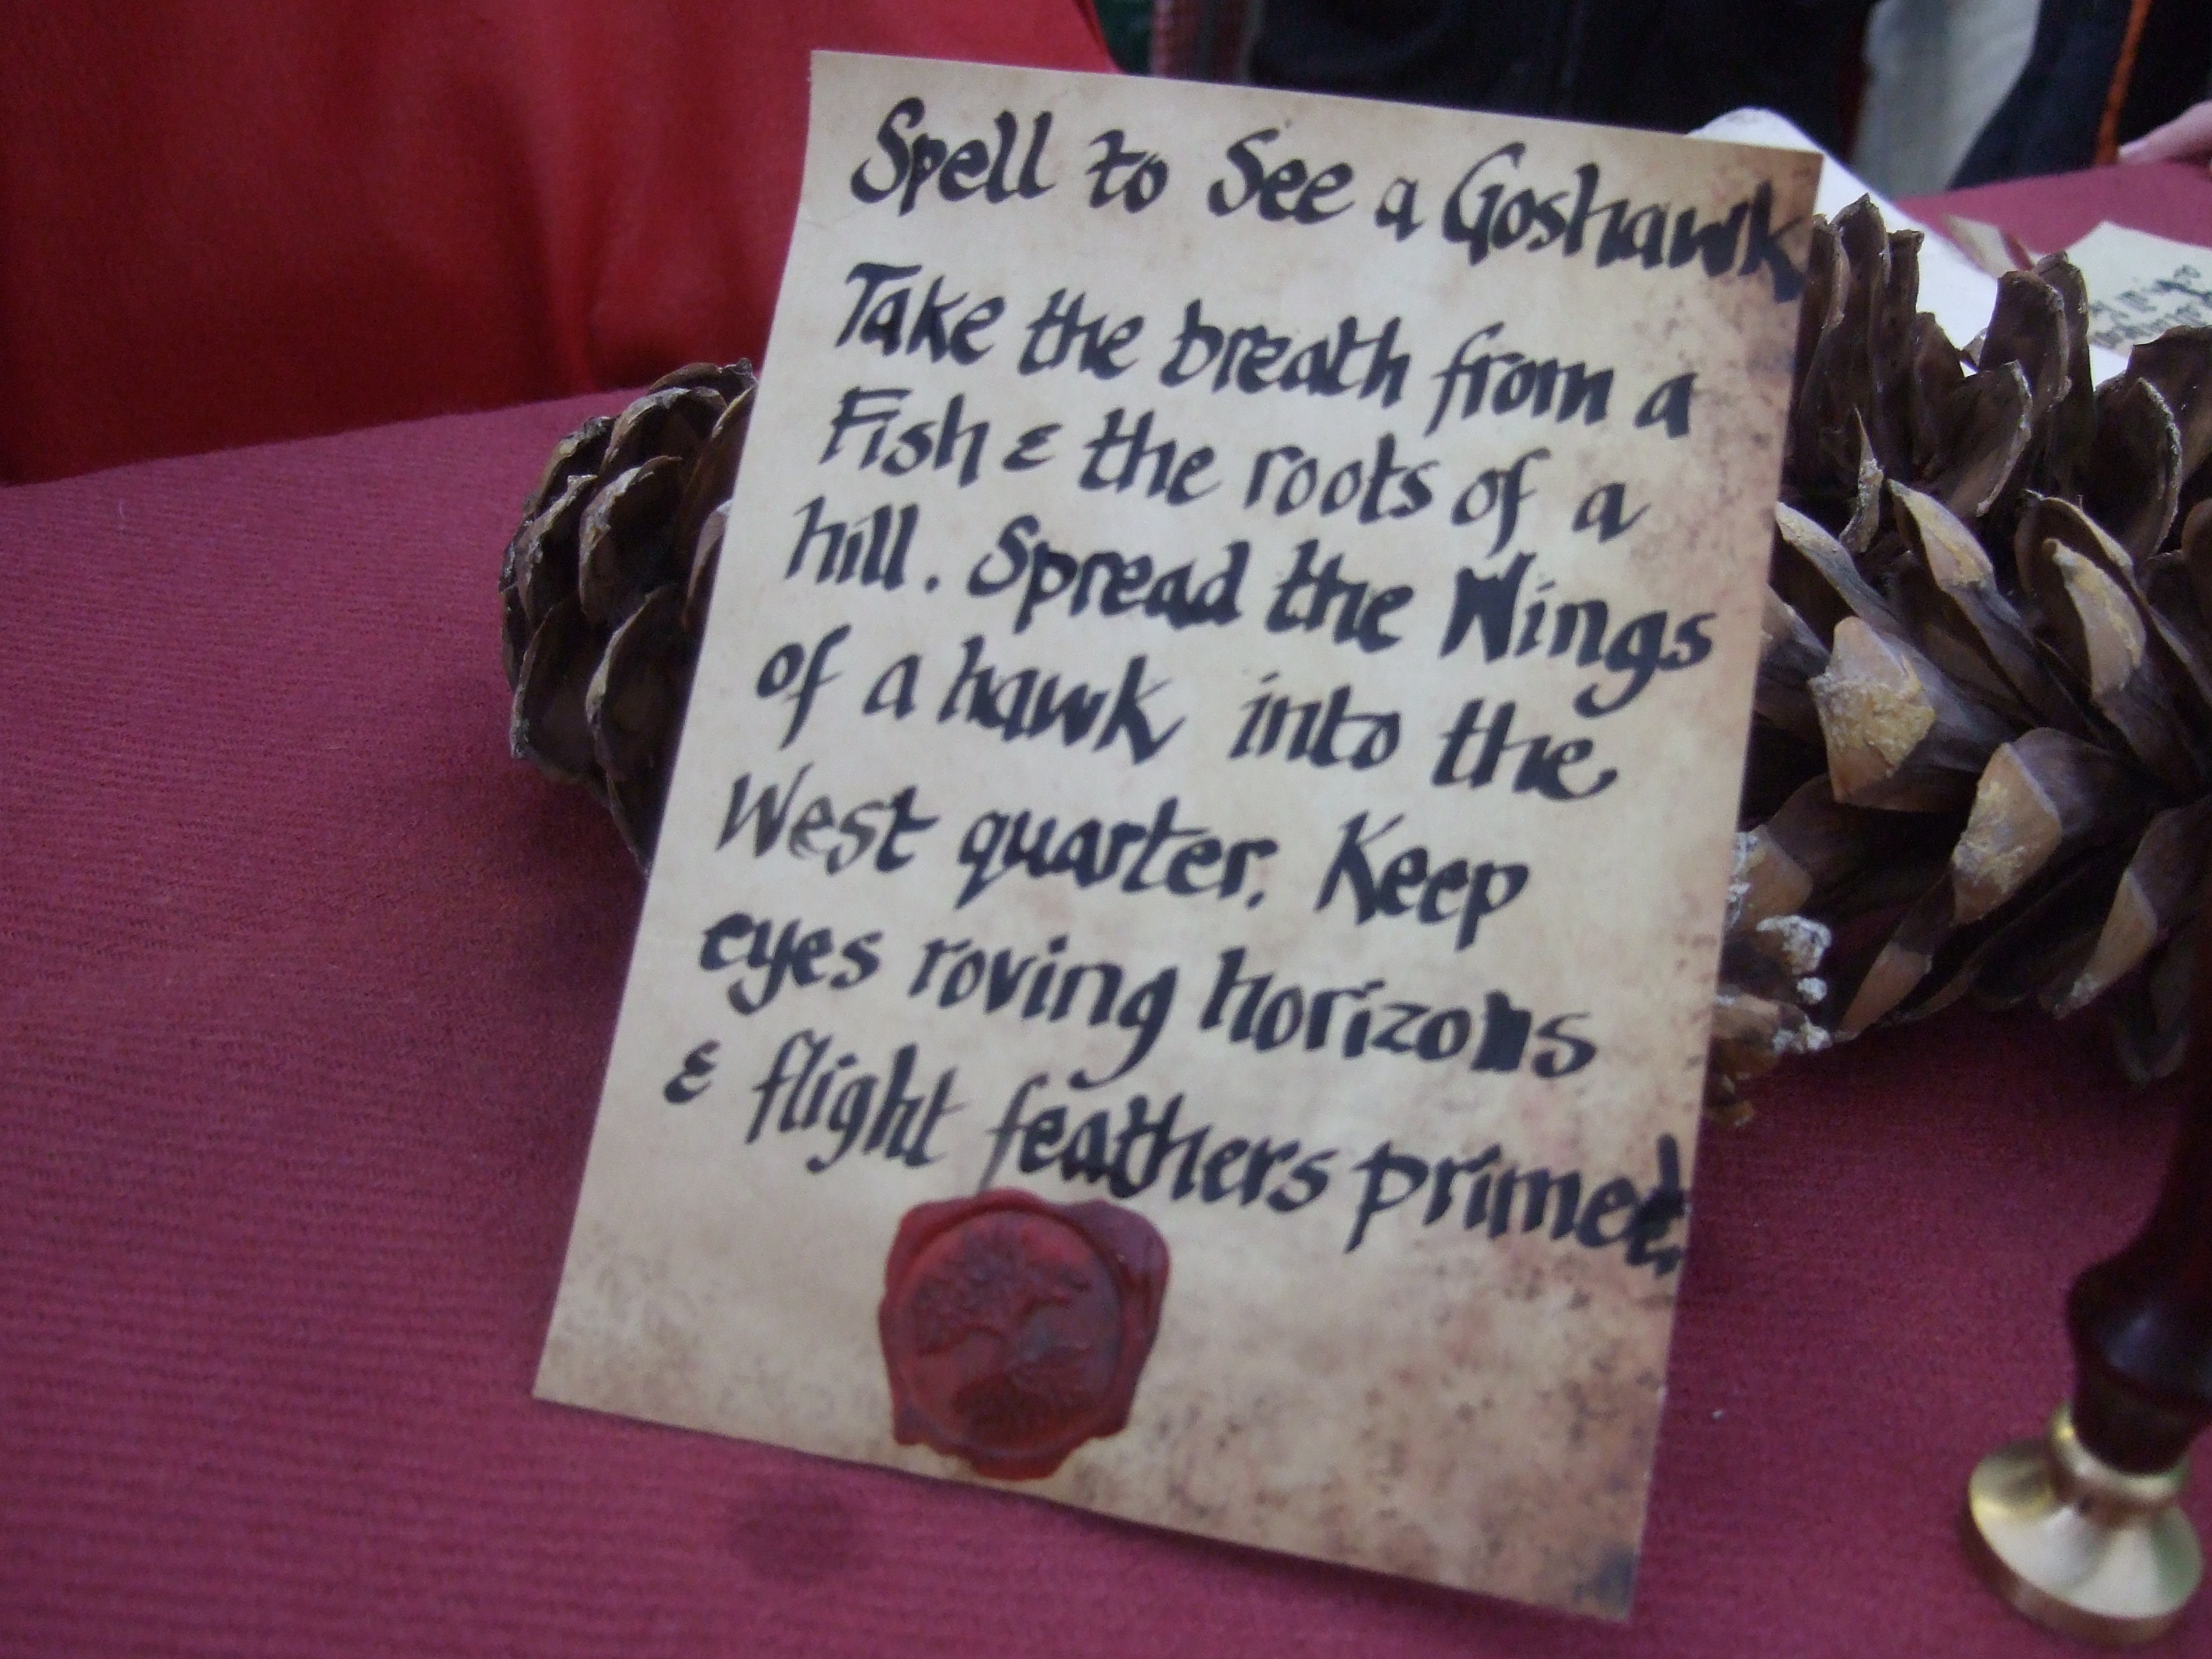 Spell to See a Goshawk
Take the breath from a
Fish & the roots of a
hill. Spread the Wings
of a hawk into the
West quarter. Keep
eyes roving horizons
& flight feathers primed.